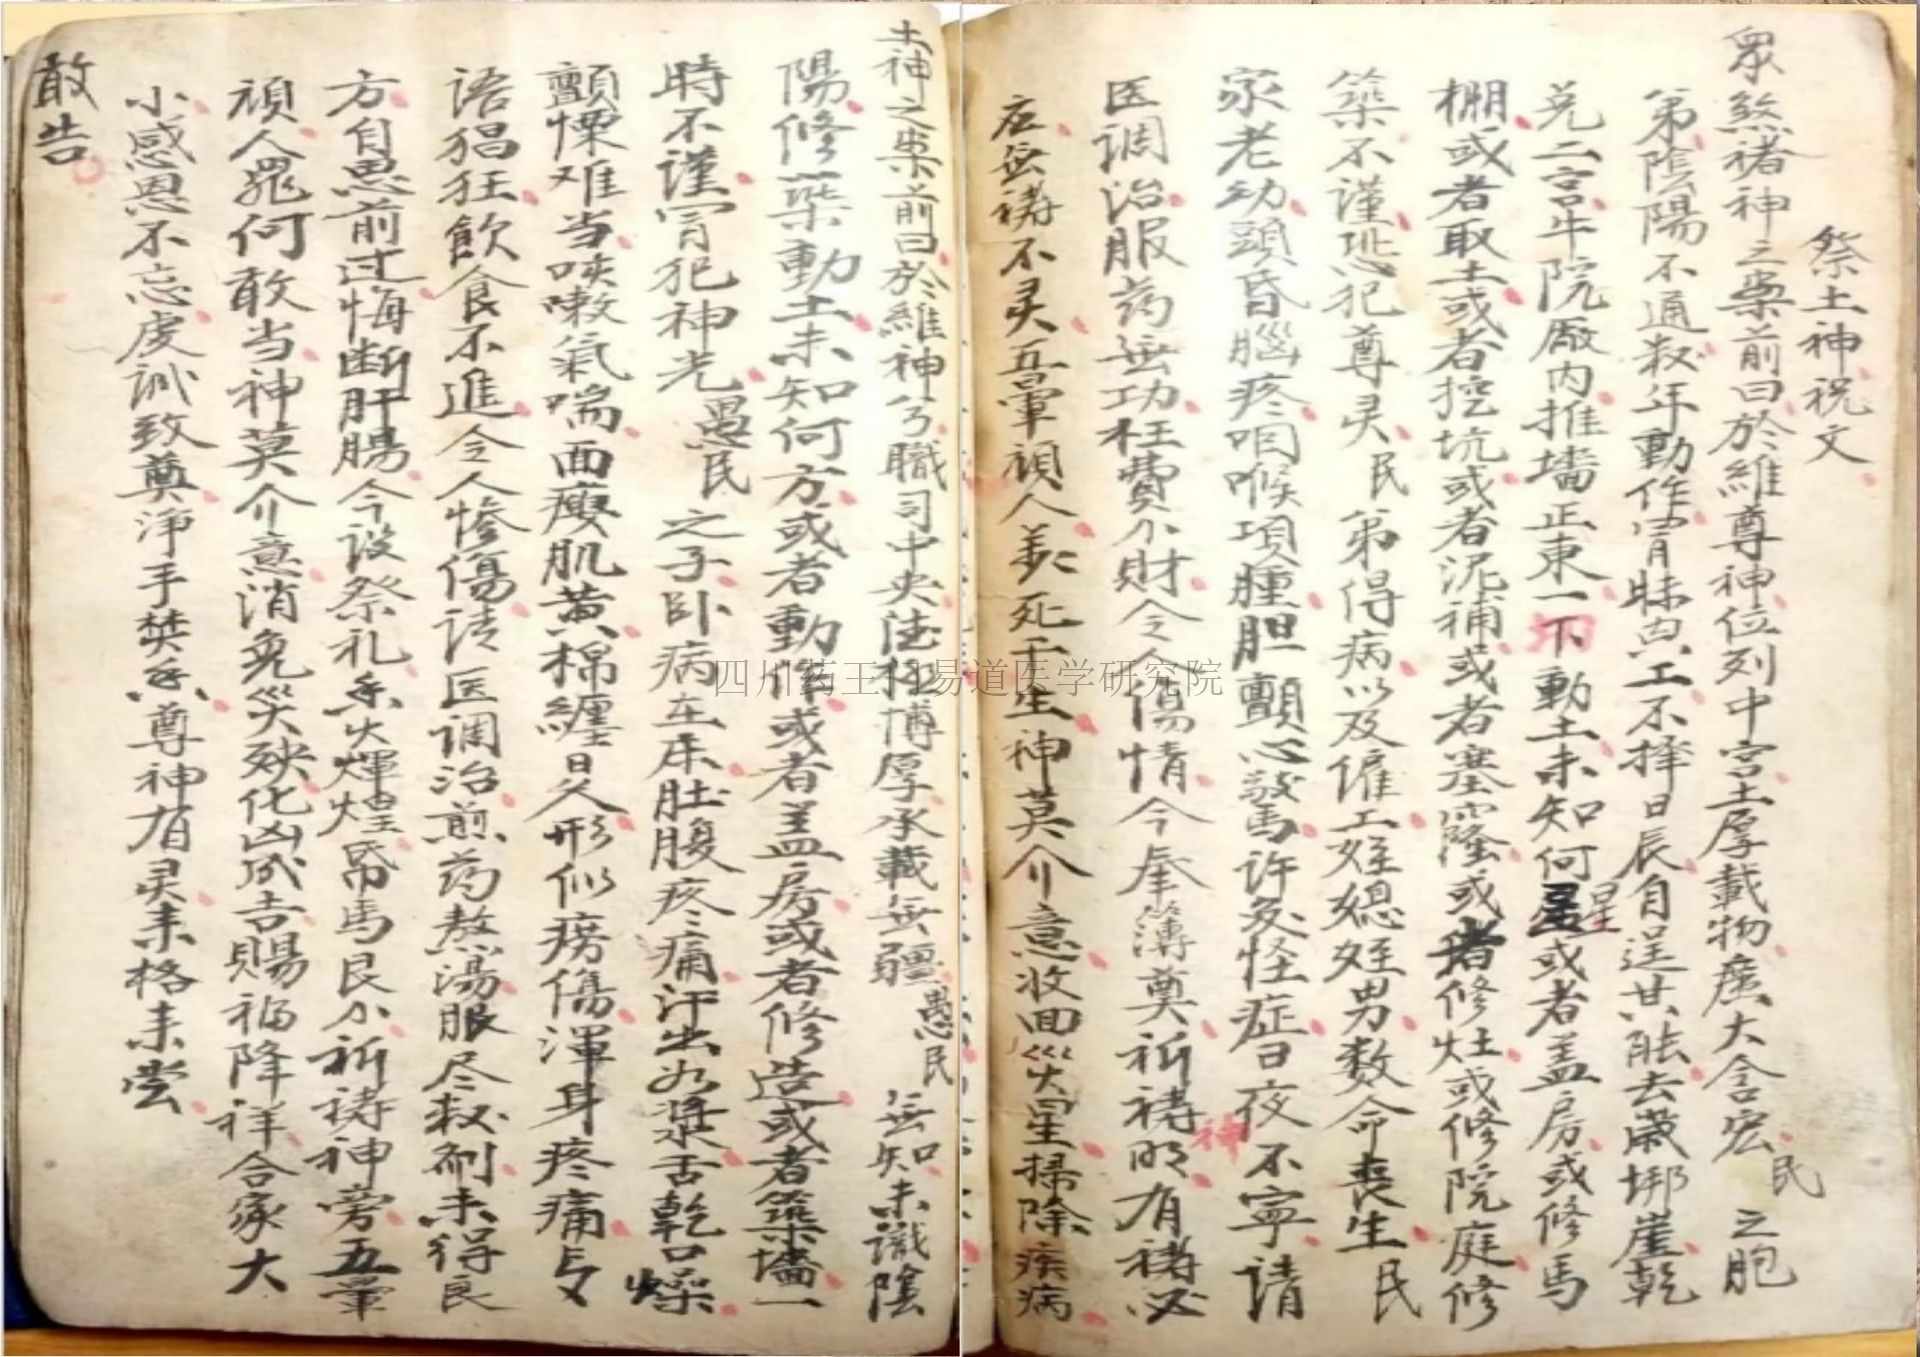 祭土神祝文
衆煞褚神之案前曰於維尊神位列中宫土厚載物廣大含宏民之胞
第陰陽不通叔年動作冐昧興工不择日辰自逞其能去崴垹崖乾
兑二宫牛院厰内推墻正東一下動土未知何星或者盖房或修馬
棚或者取土或者挖坑或者泥補或者塞窿或者修灶或修院庭修
築不谨恐犯尊灵民第得病以及僱工姪媳姪男数命丧生民
家老幼頭昏腦疼咽喉項腫胆顫心驚许多怪症日夜不寧請
医調治服药無功枉費小財令人傷情今奉簿奠祈禱神明有禱必
应無禱不灵五暈頑人義仁死于生神莫介意收回災星掃除疾病
土神之案前曰於維神兮職司中央德极博厚承載無疆愚民無知未識陰
陽修築動土未知何方或者動作或者盖房或者修造或者築墙一
時不谨冐犯神光愚民之子卧病在床肚腹疼痛汗出如漿舌乾口燥
顫慄难当咳嗽氣喘面瘦肌黄棉纏日久形似痨傷渾身疼痛与
语猖狂飲食不進令人惨傷请医调治煎药熬湯服尽数劑未得良
方自思前过悔断肝腸今设祭礼香火煇煌帋馬艮小祈禱神旁五暈
頑人罪何敢当神莫介意消免災殃化凶成吉賜福降祥合家大
小感恩不忘虔诚致奠净手焚香尊神有灵来格来尝
敢告
四川药王 易道医学研究院